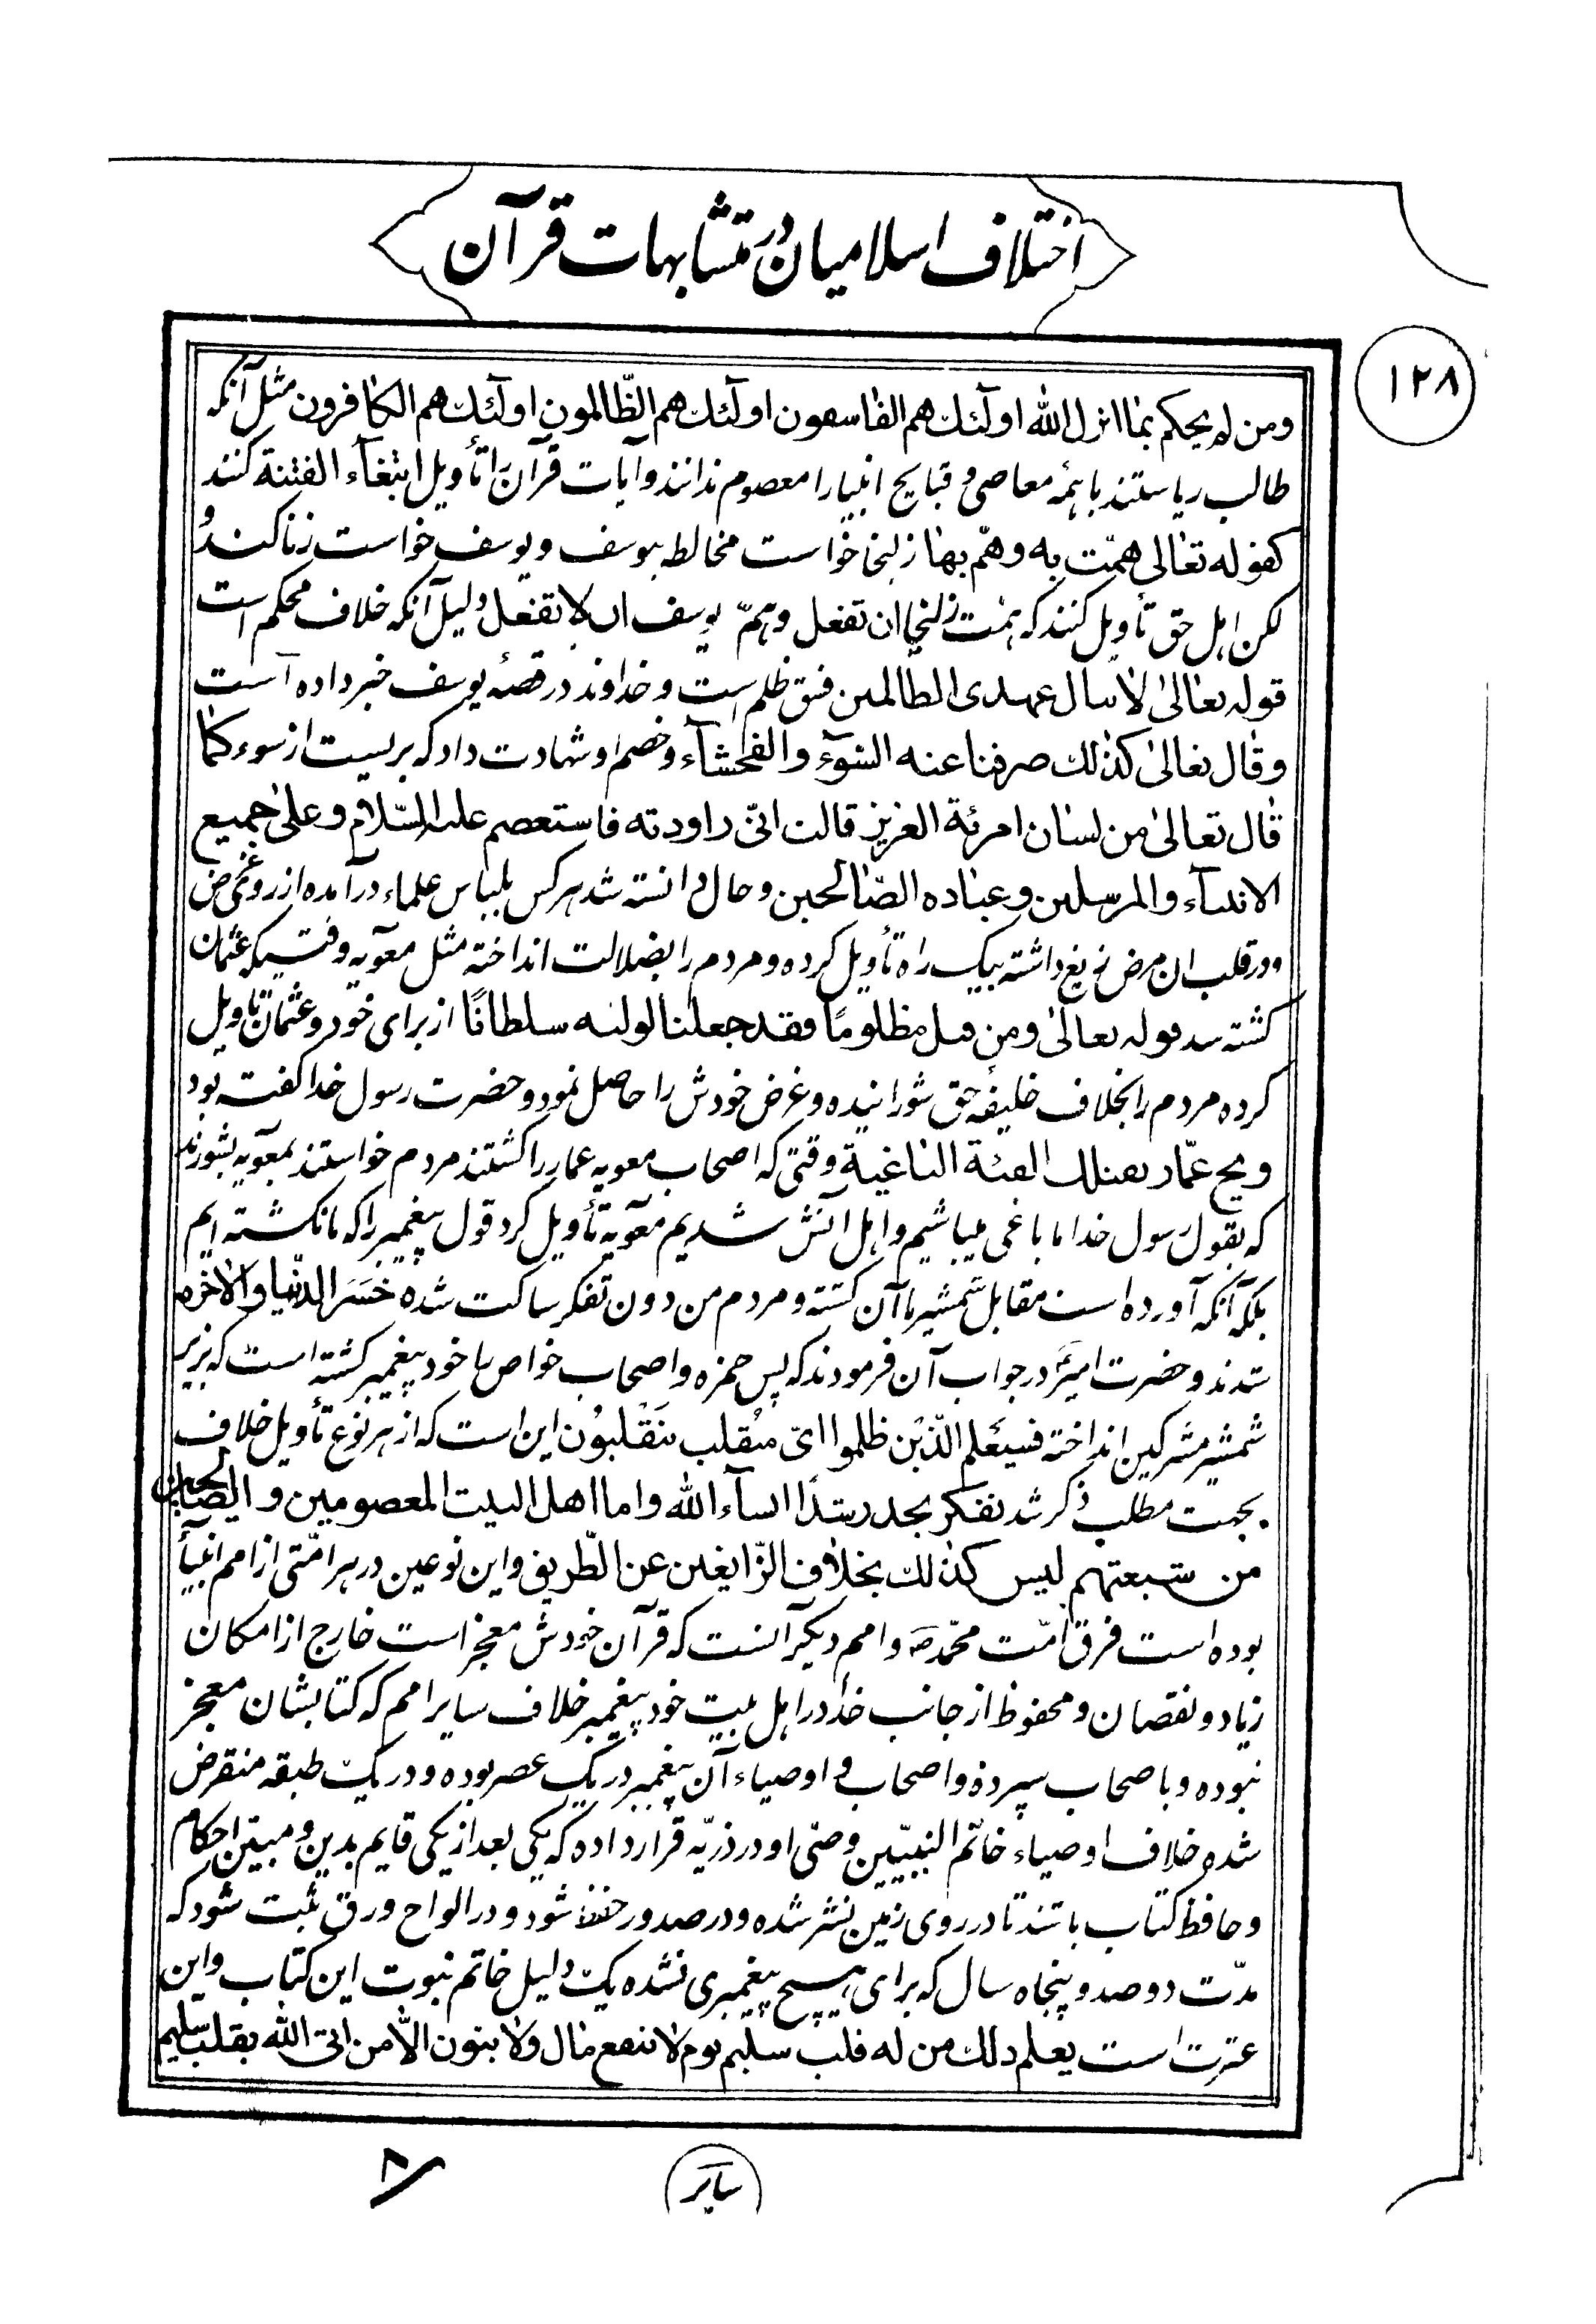 اختلاف اسلامیان در متشابهات قرآن
۱۲۸
ومن لم یحکم بما انزل الله اولٓئك هم الفاسقون اولٓئك هم الظّالمون اولٓئك هم الکافرون مثل آنکه
طالب ریاستند با همه معاصی و قبایح انبیا را معصوم ندانند و آیات قرآن را تأویل ابتغآء الفتنة کنند
کقوله تعالی همّت به وهمّ بها زلیخا خواست مخالطه بیوسف و یوسف خواست زنا کند و
لکن اهل حق تأویل کنند که همت زلیخا ان تفعل وهمّ یوسف ان لا یفعل دلیل آنکه خلاف محکم است
قوله تعالیٰ لا ینال عهدی الظالمین فسق ظلم است و خداوند در قصهٔ یوسف خبر داده است
وقال تعالیٰ کذلك صرفنا عنه السّوٓء والفحشآء و خصم او شهادت داد که بریست از سوء کما
قال تعالیٰ من لسان امرئة العزیز قالت انّی راودته فاستعصم علیه السّلام وعلیٰ جمیع
الانبیآء والمرسلین وعباده الصّالحین و حال دانسته شد هر کس بلباس علماء درآمده از روی غرض
ودر قلب ان مرض زیغ داشته بیك راه تأویل کرده و مردم را بضلالت انداخته مثل معٰویه وقتیکه عثمان
کشته شد قوله تعالیٰ ومن قتل مظلومًا فقد جعلنا لولیّه سلطانًا از برای خود و عثمان تأویل
کرده مردم را بخلاف خلیفهٔ حق شورانیده و غرض خودش را حاصل نمود و حضرت رسول خدا گفته بود
ویح عمّار یقتلك الفئة الباغیة وقتی که اصحاب معویه عمار را کشتند مردم خواستند بمعٰویه بشورند
که بقول رسول خدا ما باغی میباشیم و اهل آتش شدیم معٰویه تأویل کرد قول پیغمبر را که ما نکشته ایم
بلکه آنکه آورده است مقابل شمشیر ما آن کشته و مردم من دون تفکر ساکت شده خَسَرَ الدّنیا والآخره
شدند و حضرت امیر در جواب آن فرمودند که پس حمزه و اصحاب خواص را خود پیغمبر کشته است که بزیر
شمشیر مشرکین انداخته فسیَعلم الّذین ظلموا ایّ منقلب یَنقلبوُن این است که از هر نوع تأویل خلاف
بجهت مطلب ذکر شد تفکر تجد رشدًا انشآء الله واما اهل البیت المعصومین والصّالحین
من شیعتهم لیس کذلك بخلاف الزّایغین عن الطّریق و این نوعین در هر امّتی از امم انبیآء
بوده است فرق امّت محمّد ص و امم دیگر آنست که قرآن خودش معجز است خارج از امکان
زیاد و نقصان و محفوظ از جانب خدا در اهل بیت خود پیغمبر خلاف سایر امم که کتابشان معجز
نبوده و با صحاب سپرده و اصحاب و اوصیاء آن پیغمبر در یک عصر بوده و در یک طبقه منقرض
شده خلاف اوصیاء خاتم النبیّین وصیّ او در ذریّه قرار داده که یکی بعد از یکی قایم بدین و مبیّن احکام
و حافظ کتاب باشند تا در روی زمین نشر شده و در صدور حفظ شود و در الواح ورق ثبت شود که
مدّت دوصد و پنجاه سال که برای هیچ پیغمبری نشده یک دلیل خاتم نبوت این کتاب و این
عترت است یعلم ذلك من له قلب سلیم یوم لا ینفع مال ولا بنون الّا من اتی الله بقلب سلیم
سایر
۸